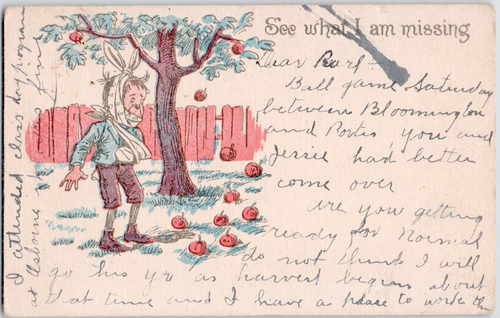 See what I am missing
Dear Pearl -
Ball game Saturday
between Bloomington
and Porter you and
Jessie had better
come over
Are you getting
ready for Normal
do not think I will
go this yr as harvest begins about
that time and I have a place to work th
I attended class day program
at Osborne fine